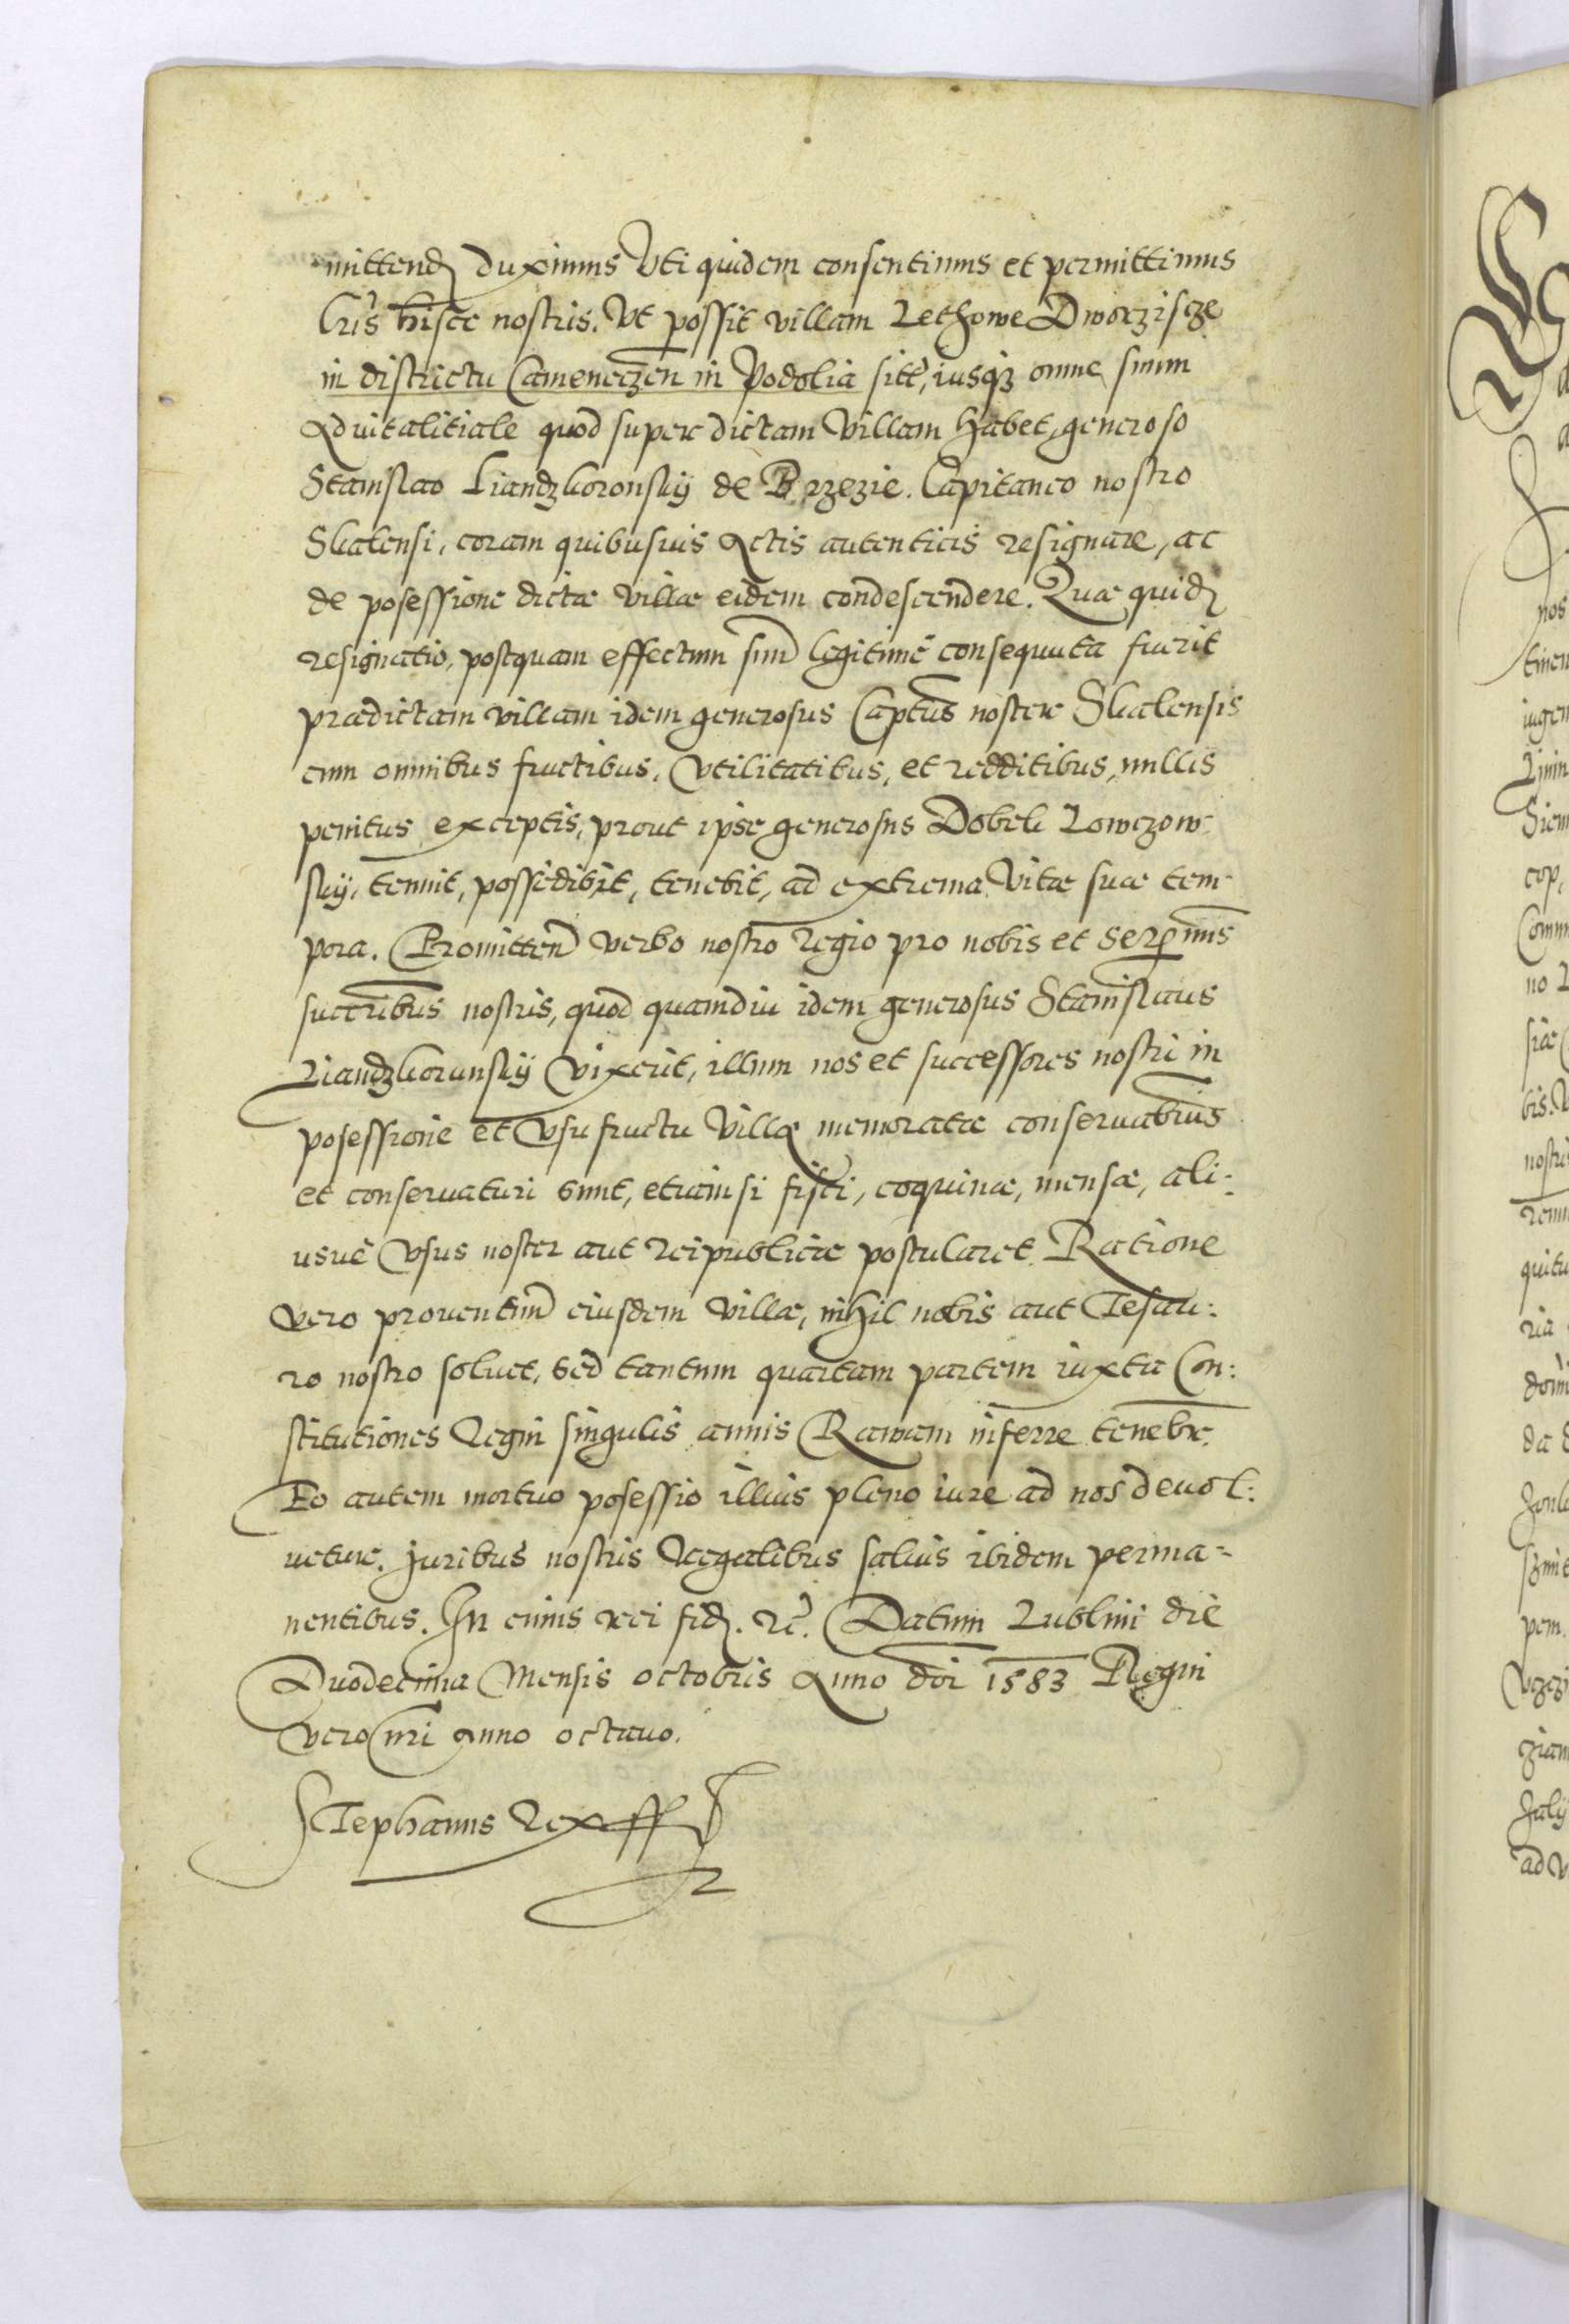 mittend duximus Uti quidem consentimus et permittimus
lris hisce nostris. Ut possit villam Lethowe Dworziscze
in districtu Cameneczen in Podolia sitt, iusq omne suum
Aduitalitiale quod super dictam Villam habet, generoso
Stanislao Liandzkoronskÿ de Brzezie. Capitaneo nostro
Skalensi, coram quibusuis Actis autenticis resignare, ac
de posessione dictæ Villæ eidem condescendere. Quæ quid
resignatio, postquam effectum suum legitime consequuta fuerit
prædictam villam idem generosus Captus noster Skalensis
cum omnibus fructibus, Vtilitatibus, et redditibus, nullis
penitus exceptis, prout ipse generosus Dobek Lowczow-
skÿ, tenuit, possedibit, tenebit, ad extrema Vitæ suæ tem-
pora. Promitten verbo nostro regio pro nobis et Sermis
succribus nostris, quod quamdiu idem generosus Stanislaus
Liandzkorunskÿ Vixerit, illum nos et successores nostri in
posessione et Vsufructu Villæ memoratæ conseruabimus
et conseruaturi sunt, etiamsi fisci, coquinæ, mensæ, ali:
usue Vsus noster aut Reipublicæ postularet. Ratione
Vero prouentuum eiusdem Villæ, nihil nobis aut Tesau:
ro nostro soluet, sed tantum quartam partem iuxta Con:
stitutiones Regni singulis annis Rawam inferre tenebr.
Eo autem mortuo posessio illius pleno iure ad nos deuol:
uetur. Juribus nostris Regalibus saluis ibidem perma-
nentibus. In cuius rei fid. rc. Datum Lublini die
Duodecima Mensis octobris Anno doi 1583 Regni
Vero nri Anno octauo.
Stephanus Rex ff